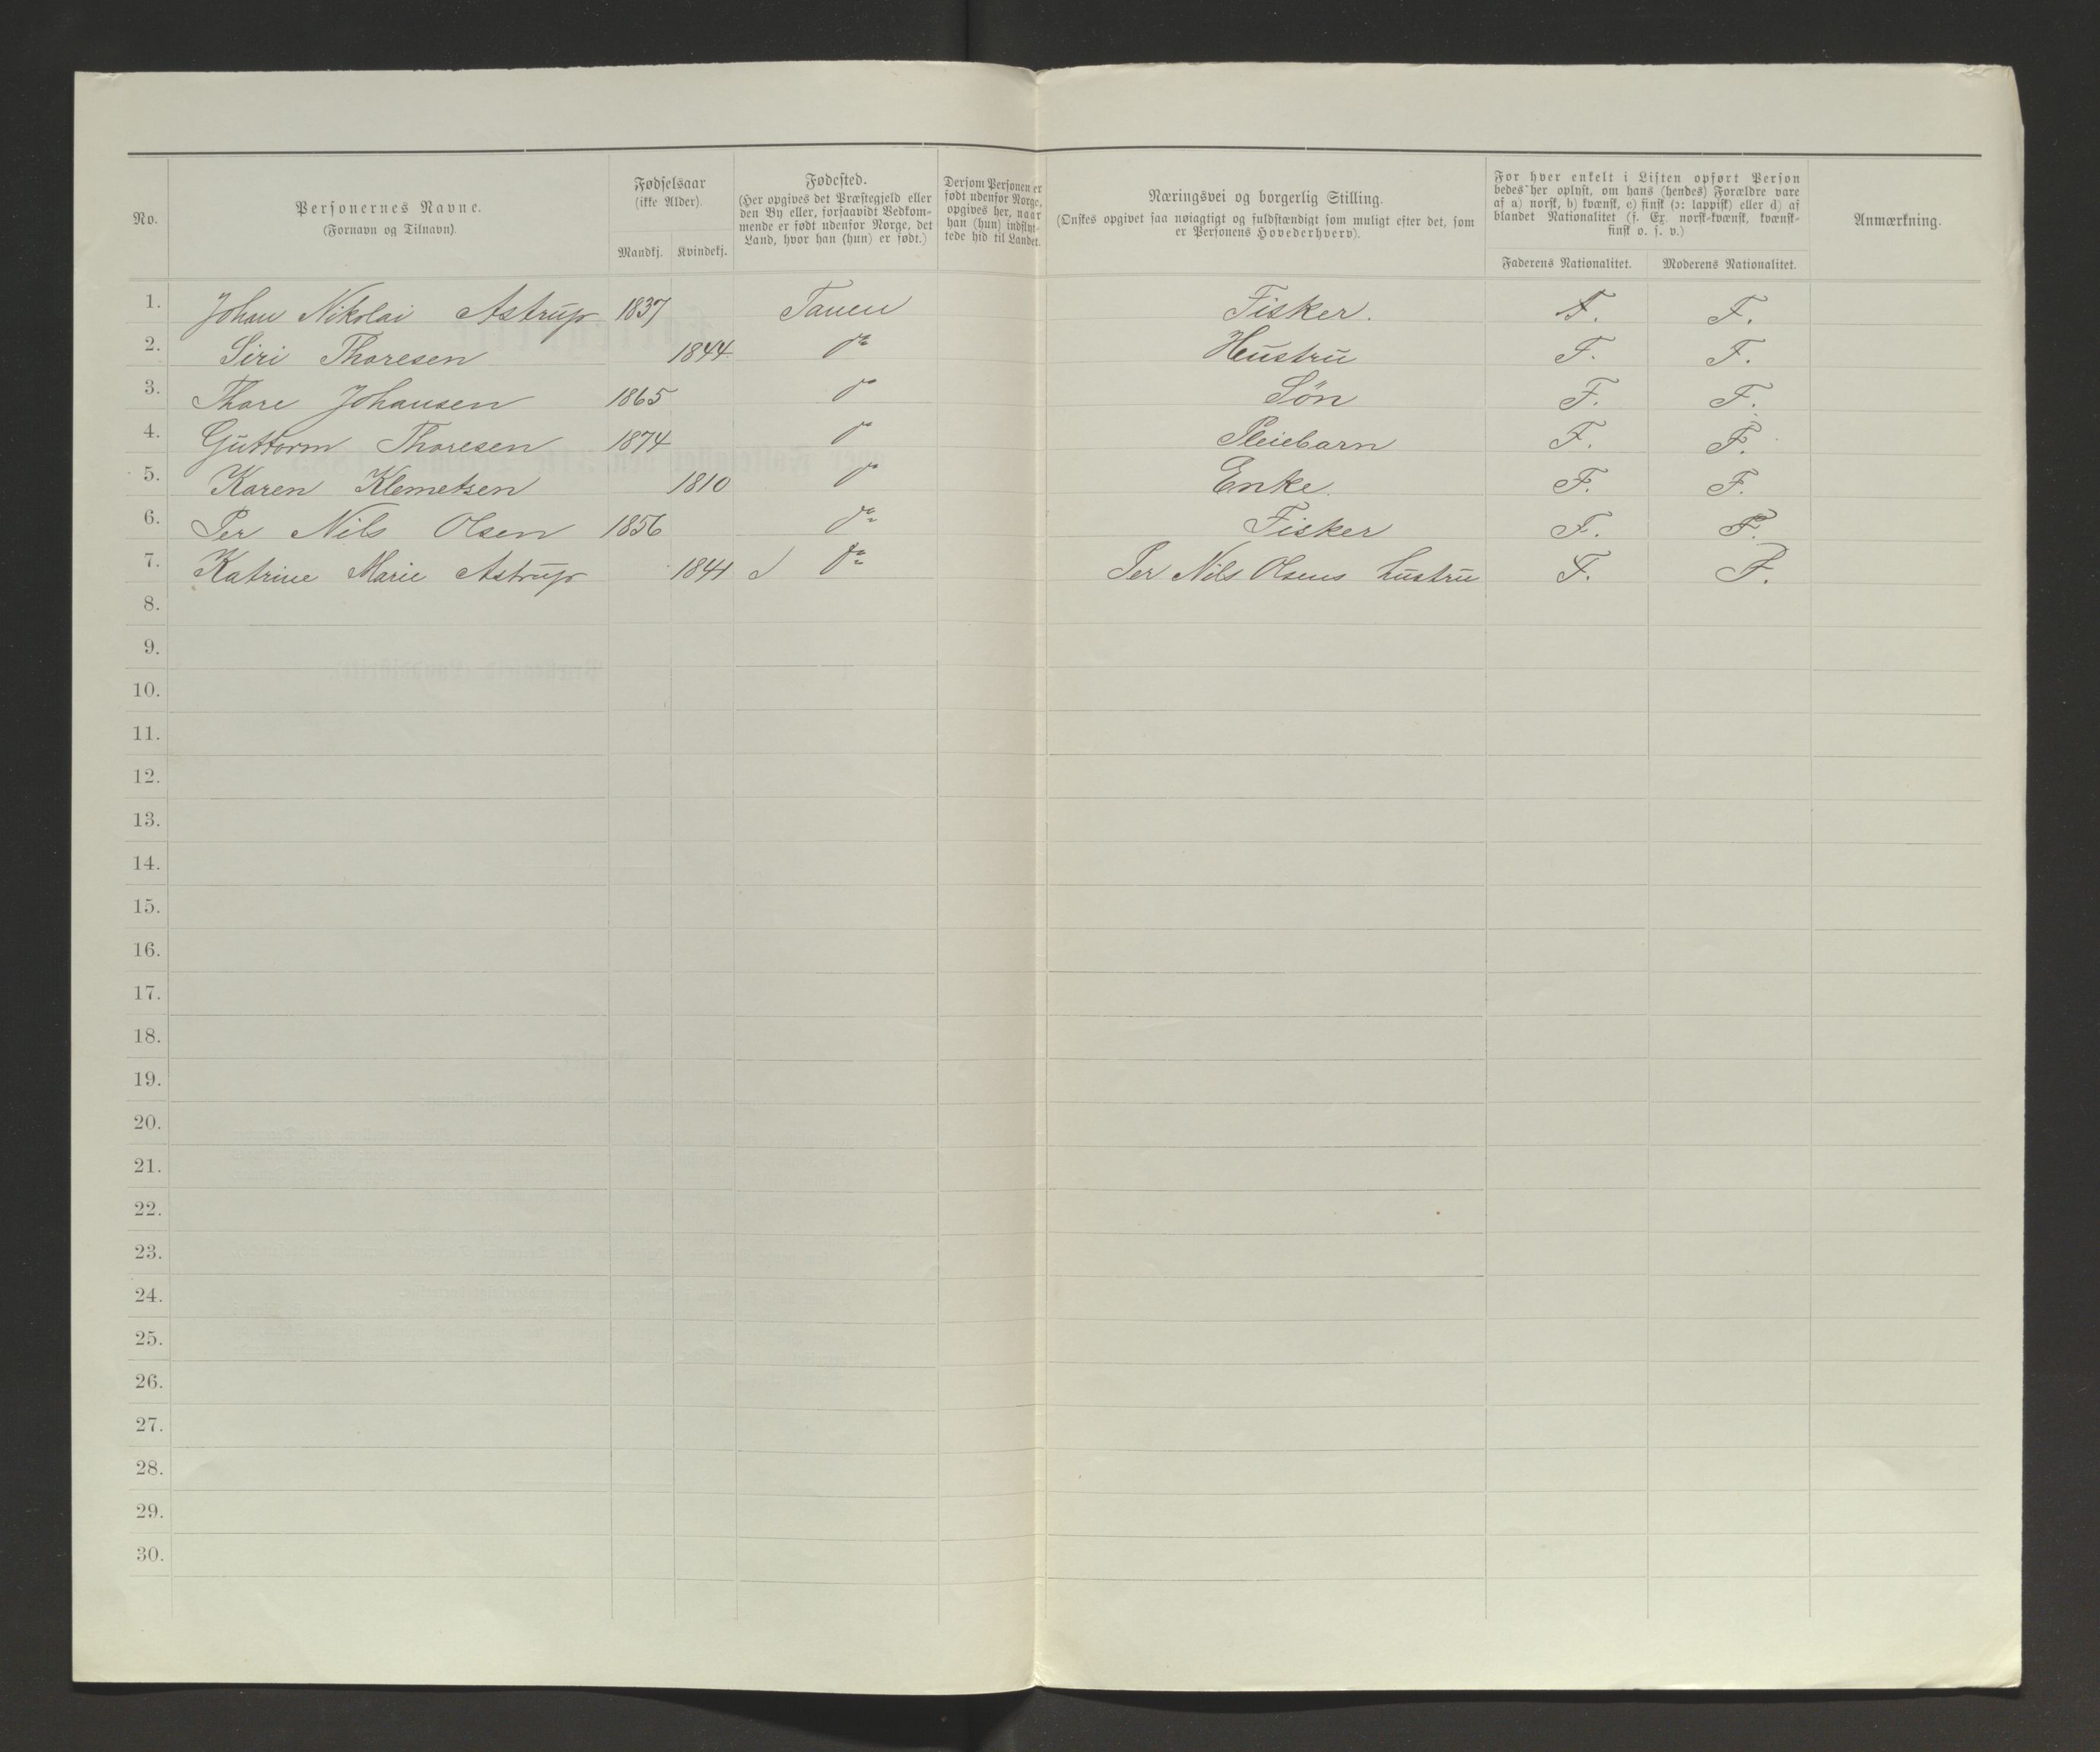 No.
Personernes Navne.
(Fornavn og Tilnavn).
Fødselsaar
(ikke Alder).
Mandkj. Kvindekj.
Fødested.
(Her opgives det Præstegjeld eller
den By eller, forsaavidt Vedkom-
mende er født udenfor Norge, det
Land, hvor han (hun) er født.)
Dersom Personen er
født udenfor Norge,
opgives her, naar
han (hun) indflyt-
tede hid til Landet.
Næringsvei og borgerlig Stilling.
(Ønskes opgivet saa nøiagtigt og fuldstændigt som muligt efter det, som
er Personens Hovederhverv).
For hver enkelt i Listen opført Person
bedes her oplyst, om hans (hendes) Forældre vare
af a) norsk, b) kvænsk, c) finsk (ɔ: lappisk) eller d) af
blandet Nationalitet (f. Ex. norsk-kvænsk, kvænsk-
finsk o. s. v.)
Faderens Nationalitet. Moderens Nationalitet.
Anmærkning.
1. Johan Nikolai Astrup 1837 Tanen Fisker. F. F.
2. Siri Thoresen 1844 do Hustru F. F.
3. Thore Johansen 1865 do Søn F. F.
4. Guttorm Thoresen 1874 do Pleiebarn F. F.
5. Karen Klemetsen 1810 do Enke F. F.
6. Per Nils Olsen 1856 do Fisker F. F.
7. Katrine Marie Astrup 1841 do Per Nils Olsens hustru F. F.
8.
9.
10.
11.
12.
13.
14.
15.
16.
17.
18.
19.
20.
21.
22.
23.
24.
25.
26.
27.
28.
29.
30.